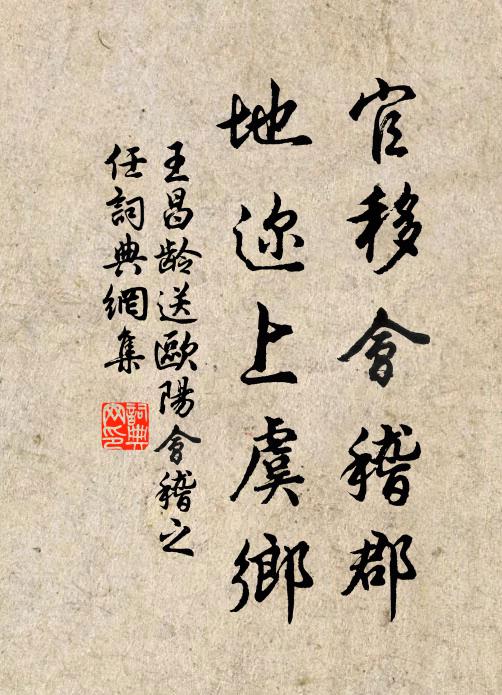 官移會稽郡
地迩上虞鄉
王昌龄送歐陽會稽之
任詞典網集
詞典
网印